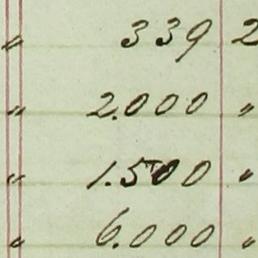 " 339 2
" 2.000 "
" 1.500 "
" 6.000 "